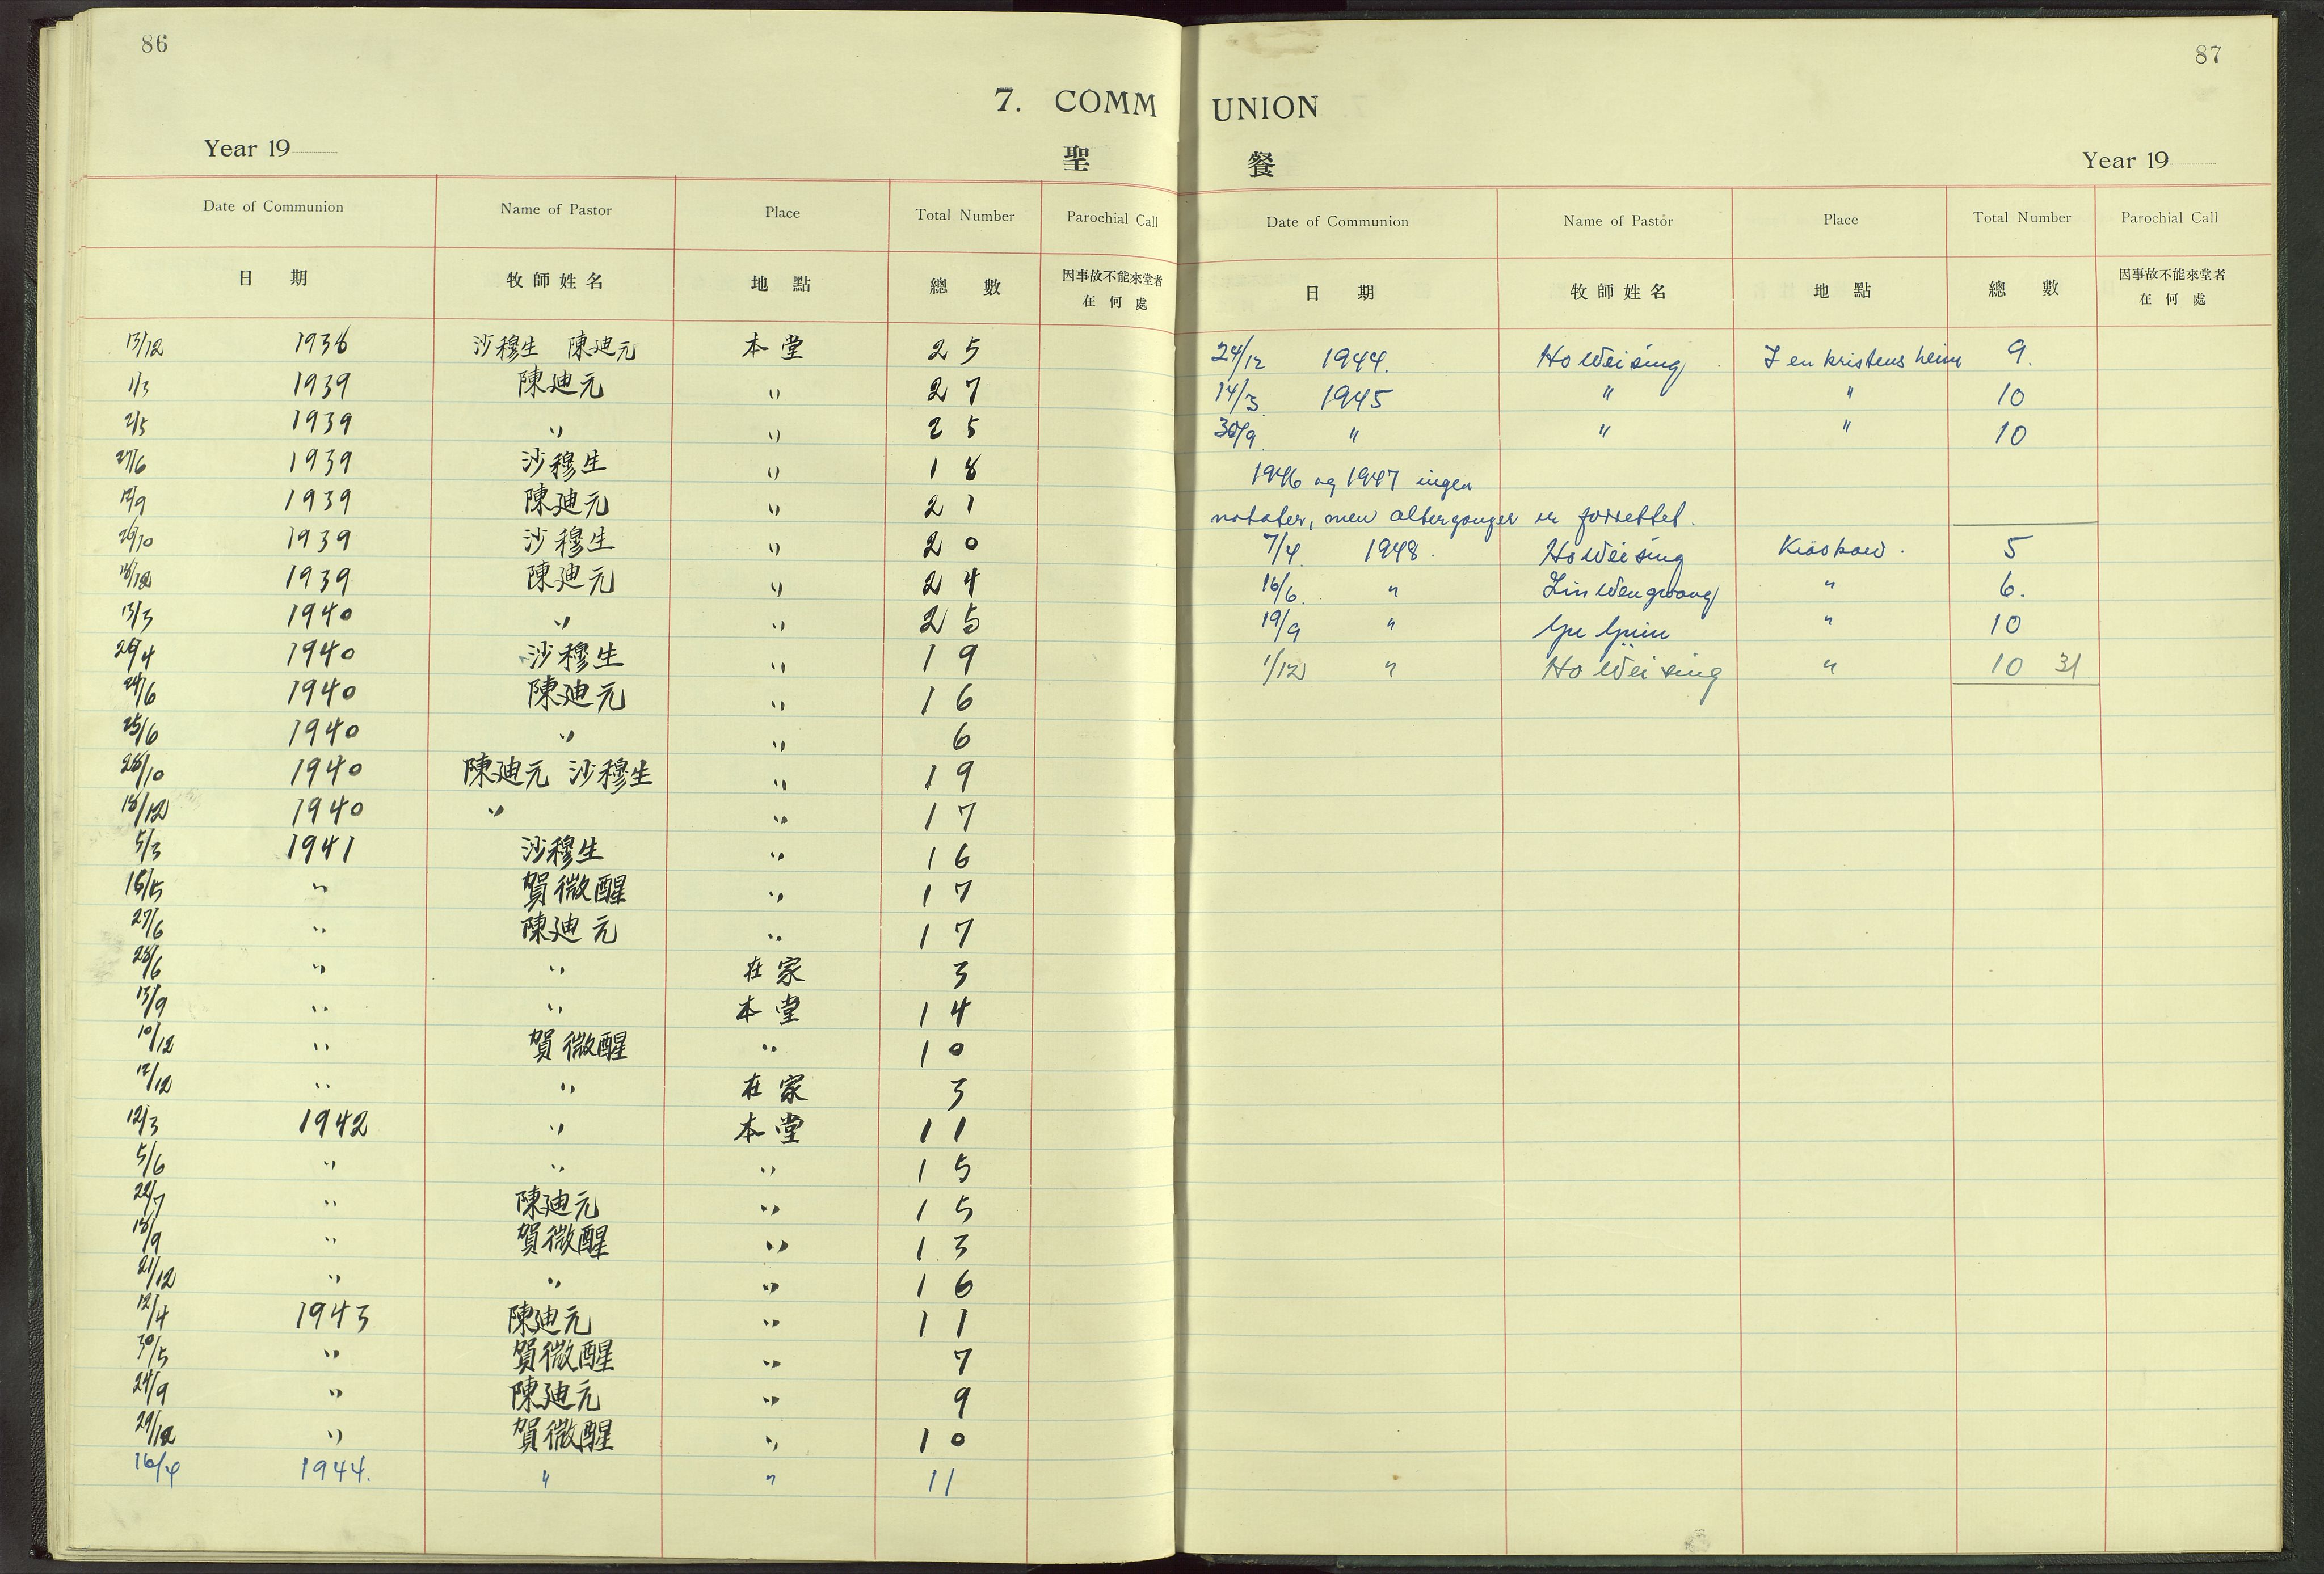 86
7. COMM
Year 19
聖
Date of Communion Name of Pastor Place Total Number Parochial Call
日 期 牧師姓名 地 點 總 數 因事故不能來堂者
在何處
13/12 1938 沙穆生 陳廸元 本堂 25
1/3 1939 陳廸元 〃 27
2/5 1939 〃 〃 25
27/6 1939 沙穆生 〃 18
12/9 1939 陳廸元 〃 21
26/10 1939 沙穆生 〃 20
18/12 1939 陳廸元 〃 24
13/3 1940 〃 〃 25
26/4 1940 沙穆生 〃 19
24/6 1940 陳廸元 〃 16
25/6 1940 〃 〃 6
28/10 1940 陳廸元 沙穆生 〃 19
18/12 1940 〃 〃 17
5/3 1941 沙穆生 〃 16
16/5 〃 賀微醒 〃 17
27/6 〃 陳廸元 〃 17
28/6 〃 〃 在家 3
13/9 〃 〃 本堂 14
10/12 〃 賀微醒 〃 10
12/12 〃 〃 在家 3
12/3 1942 〃 本堂 11
5/6 〃 〃 〃 15
22/7 〃 陳廸元 〃 15
18/9 〃 賀微醒 〃 13
21/12 〃 〃 〃 16
12/4 1943 陳廸元 〃 11
30/5 〃 賀微醒 〃 7
24/9 〃 陳廸元 〃 9
29/12 〃 賀微醒 〃 10
16/4 1944. 〃 〃 11
87
UNION
餐
Year 19
Date of Communion Name of Pastor Place Total Number Parochial Call
日 期 牧師姓名 地 點 總 數 因事故不能來堂者
在何處
24/12 1944. Ho Wei sing I en kristens heim 9.
14/3 1945 〃 〃 10
30/9 〃 〃 〃 10
1946 og 1947 ingen
notater, men altergonger er forrettet.
7/4 1948. Ho Wei sing 5
16/6. 〃 〃 6.
19/9 〃 〃 10
1/12 〃 Ho Wei sing 〃 10 31